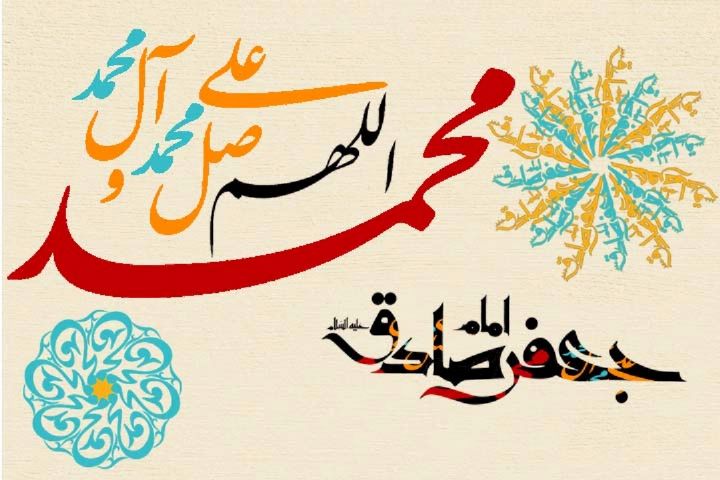 اللهم صل علی محمد و آل محمد
محمد
امام جعفر صادق علیه السلام